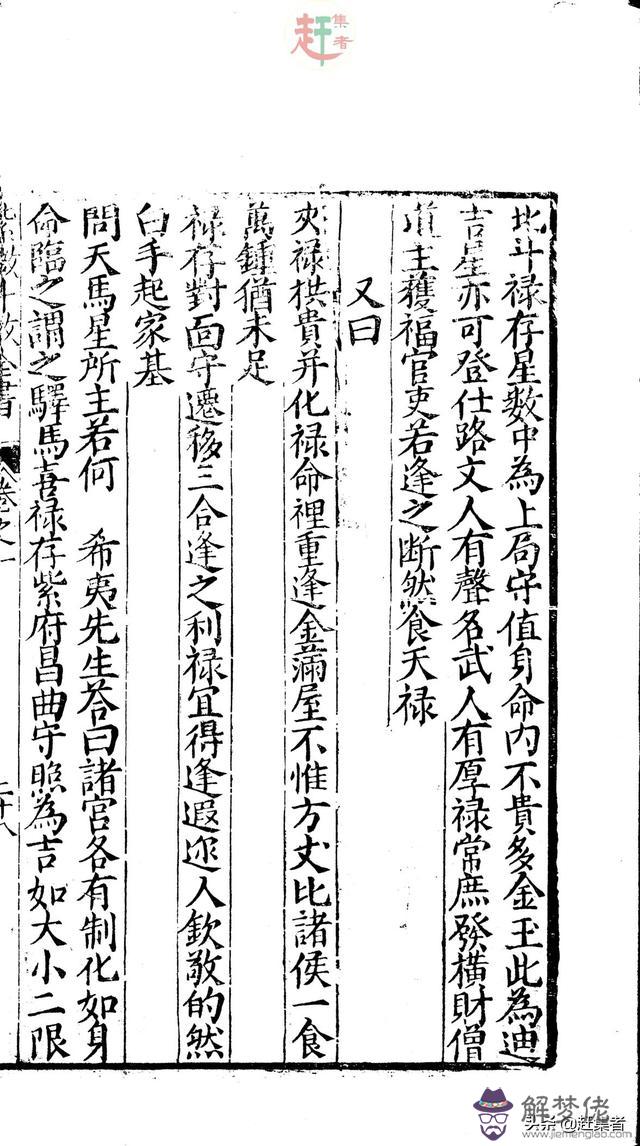 赶集者
北斗禄存星數中為上局守值身命內不貴多金玉此為迪
吉星亦可登仕路文人有聲名武人有厚禄常庶發橫財僧
道主獲福官吏若逢之断然食天禄
又曰
夾禄拱貴并化禄命裡重逢金滿屋不惟方丈比諸侯一食
萬鍾猶未足
禄存對面守遷移三合逢之利禄宜得逢遐迩人欽敬的然
白手起家基
問天馬星所主若何 希夷先生荅曰諸宫各有制化如身
命臨之謂之驛馬喜禄存紫府昌曲守照為吉如大小二限
數斗數全書 卷之一 二十八
解梦佬
头条@赶集者
www.jiemenglao.com